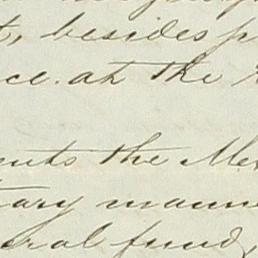 t, besides p
ce at the
ents the Me
tary manne
eral fund,